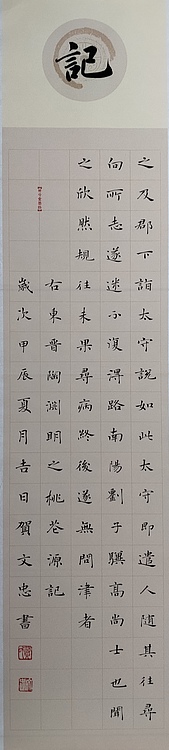 記
之及郡下詣太守說如此太守即遣人隨其往尋
向所志遂迷不復得路南陽劉子驥高尚士也聞
之欣然規往未果尋病終後遂無問津者
右東晉陶淵明之桃花源記
歲次甲辰夏月吉日賀文忠書